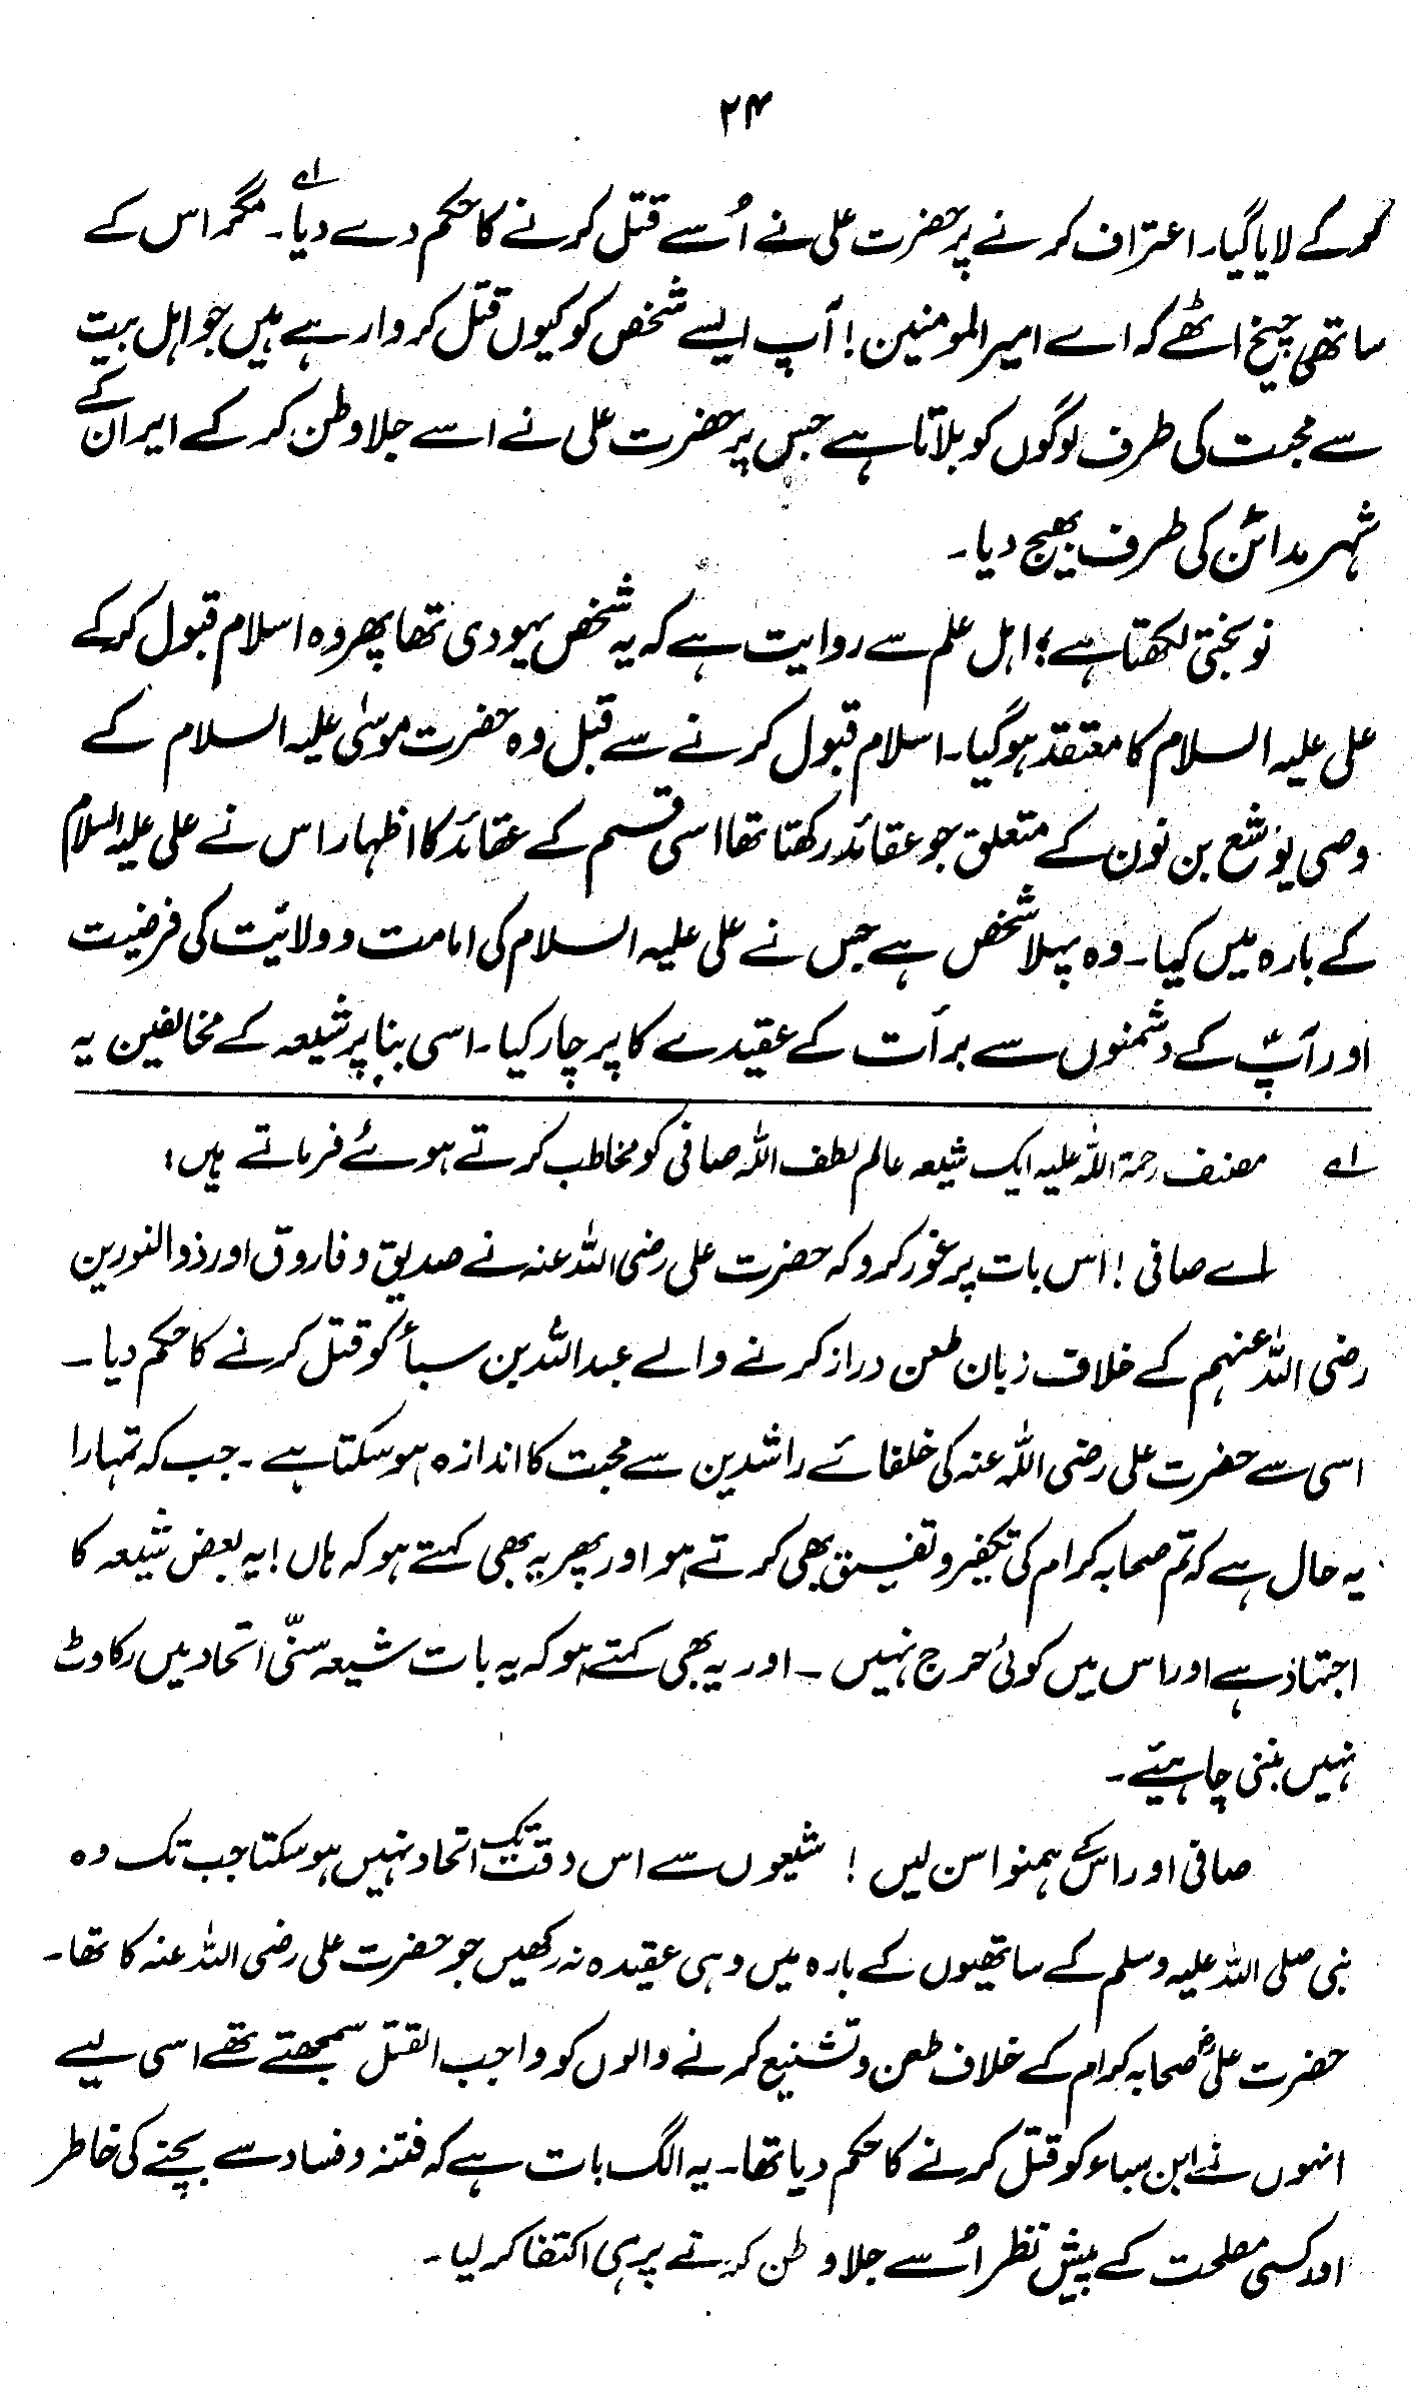 ۲۴
کرکے لایا گیا۔ اعتراف کرنے پر حضرت علی نے اُسے قتل کرنے کا حکم دے دیا۔ ؎۱ مگر اس کے
ساتھی چیخ اٹھے کہ اے امیر المومنین! آپ ایسے شخص کو کیوں قتل کروا رہے ہیں جو اہل بیت
سے محبت کی طرف لوگوں کو بلاتا ہے جس پر حضرت علی نے اسے جلا وطن کر کے ایران کے
شہر مدائن کی طرف بھیج دیا۔
نوبختی لکھتا ہے؛ اہل علم سے روایت ہے کہ یہ شخص یہودی تھا پھر وہ اسلام قبول کرکے
علی علیہ السلام کا معتقد ہوگیا۔ اسلام قبول کرنے سے قبل وہ حضرت موسیٰ علیہ السلام کے
وصی یوشع بن نون کے متعلق جو عقائد رکھتا تھا اسی قسم کے عقائد کا اظہار اس نے علی علیہ السلام
کے بارہ میں کیا۔ وہ پہلا شخص ہے جس نے علی علیہ السلام کی امامت و ولائیت کی فرضیت
اور آپؑ کے دشمنوں سے برأت کے عقیدے کا پرچار کیا۔ اسی بنا پر شیعہ کے مخالفین یہ
؎۱ مصنف رحمۃ اللہ علیہ ایک شیعہ عالم لطف اللہ صافی کو مخاطب کرتے ہوئے فرماتے ہیں:
اے صافی! اس بات پر غور کرو کہ حضرت علی رضی اللہ عنہ نے صدیق و فاروق اور ذوالنورین
رضی اللہ عنہم کے خلاف زبان طعن دراز کرنے والے عبداللہ بن سبأ کو قتل کرنے کا حکم دیا۔
اسی سے حضرت علی رضی اللہ عنہ کی خلفائے راشدین سے محبت کا اندازہ ہوسکتا ہے۔ جب کہ تمہارا
یہ حال ہے کہ تم صحابہ کرام کی تکفیر و تفسیق بھی کرتے ہو اور پھر یہ بھی کہتے ہو کہ ہاں! یہ بعض شیعہ کا
اجتہاد ہے اور اس میں کوئی حرج نہیں۔ اور یہ بھی کہتے ہو کہ یہ بات شیعہ سنّی اتحاد میں رکاوٹ
نہیں بننی چاہیئے۔
صافی اور اس کے ہمنوا سن لیں! شیعوں سے اس وقت تک اتحاد نہیں ہوسکتا جب تک وہ
نبی صلی اللہ علیہ وسلم کے ساتھیوں کے بارہ میں وہی عقیدہ نہ رکھیں جو حضرت علی رضی اللہ عنہ کا تھا۔
حضرت علیؓ صحابہ کرام کے خلاف طعن و تشنیع کرنے والوں کو واجب القتل سمجھتے تھے اسی لیے
انہوں نے ابن سباء کو قتل کرنے کا حکم دیا تھا۔ یہ الگ بات ہے کہ فتنہ و فساد سے بچنے کی خاطر
اور کسی مصلحت کے پیش نظر اُسے جلا وطن کرتے پر ہی اکتفا کر لیا۔